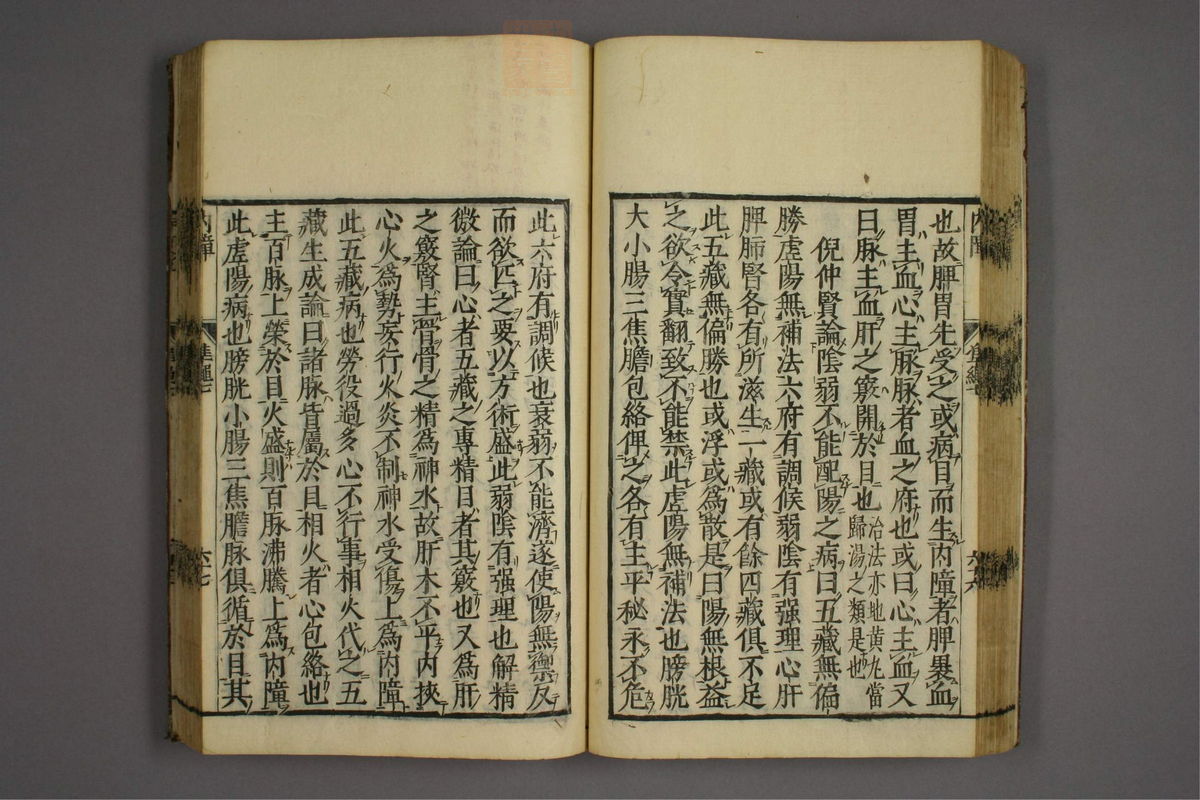 也故脾胃先受之或病目而生内障者脾裹血
胃主血心主脉脉者血之府也或曰心主血又
曰脉主血肝之竅開於目也治法亦地黄丸當歸湯之類是也
倪仲賢論陰弱不能配陽之病曰五藏無偏
勝虚陽無補法六府有調候弱陰有强理心肝
脾肺腎各有所滋生一藏或有餘四藏俱不足
此五藏無偏勝也或浮或爲散是曰陽無根益
之欲令實翻致不能禁此虚陽無補法也膀胱
大小腸三焦膽包絡俾之各有主平秘永不危
此六府有調候也衰弱不能濟遂使陽無禦反
而欲匹之要以方術盛此弱陰有强理也解精
微論曰心者五藏之專精目者其竅也又爲肝
之竅腎主骨骨之精爲神水故肝木不平内挾
心火爲勢妄行火炎不制神水受傷上爲内障
此五藏病也勞役過多心不行事相火代之五
藏生成論曰諸脉皆屬於目相火者心包絡也
主百脉上榮於目火盛則百脉沸騰上爲内障
此虚陽病也膀胱小腸三焦膽脉俱循於目其
内障
六七